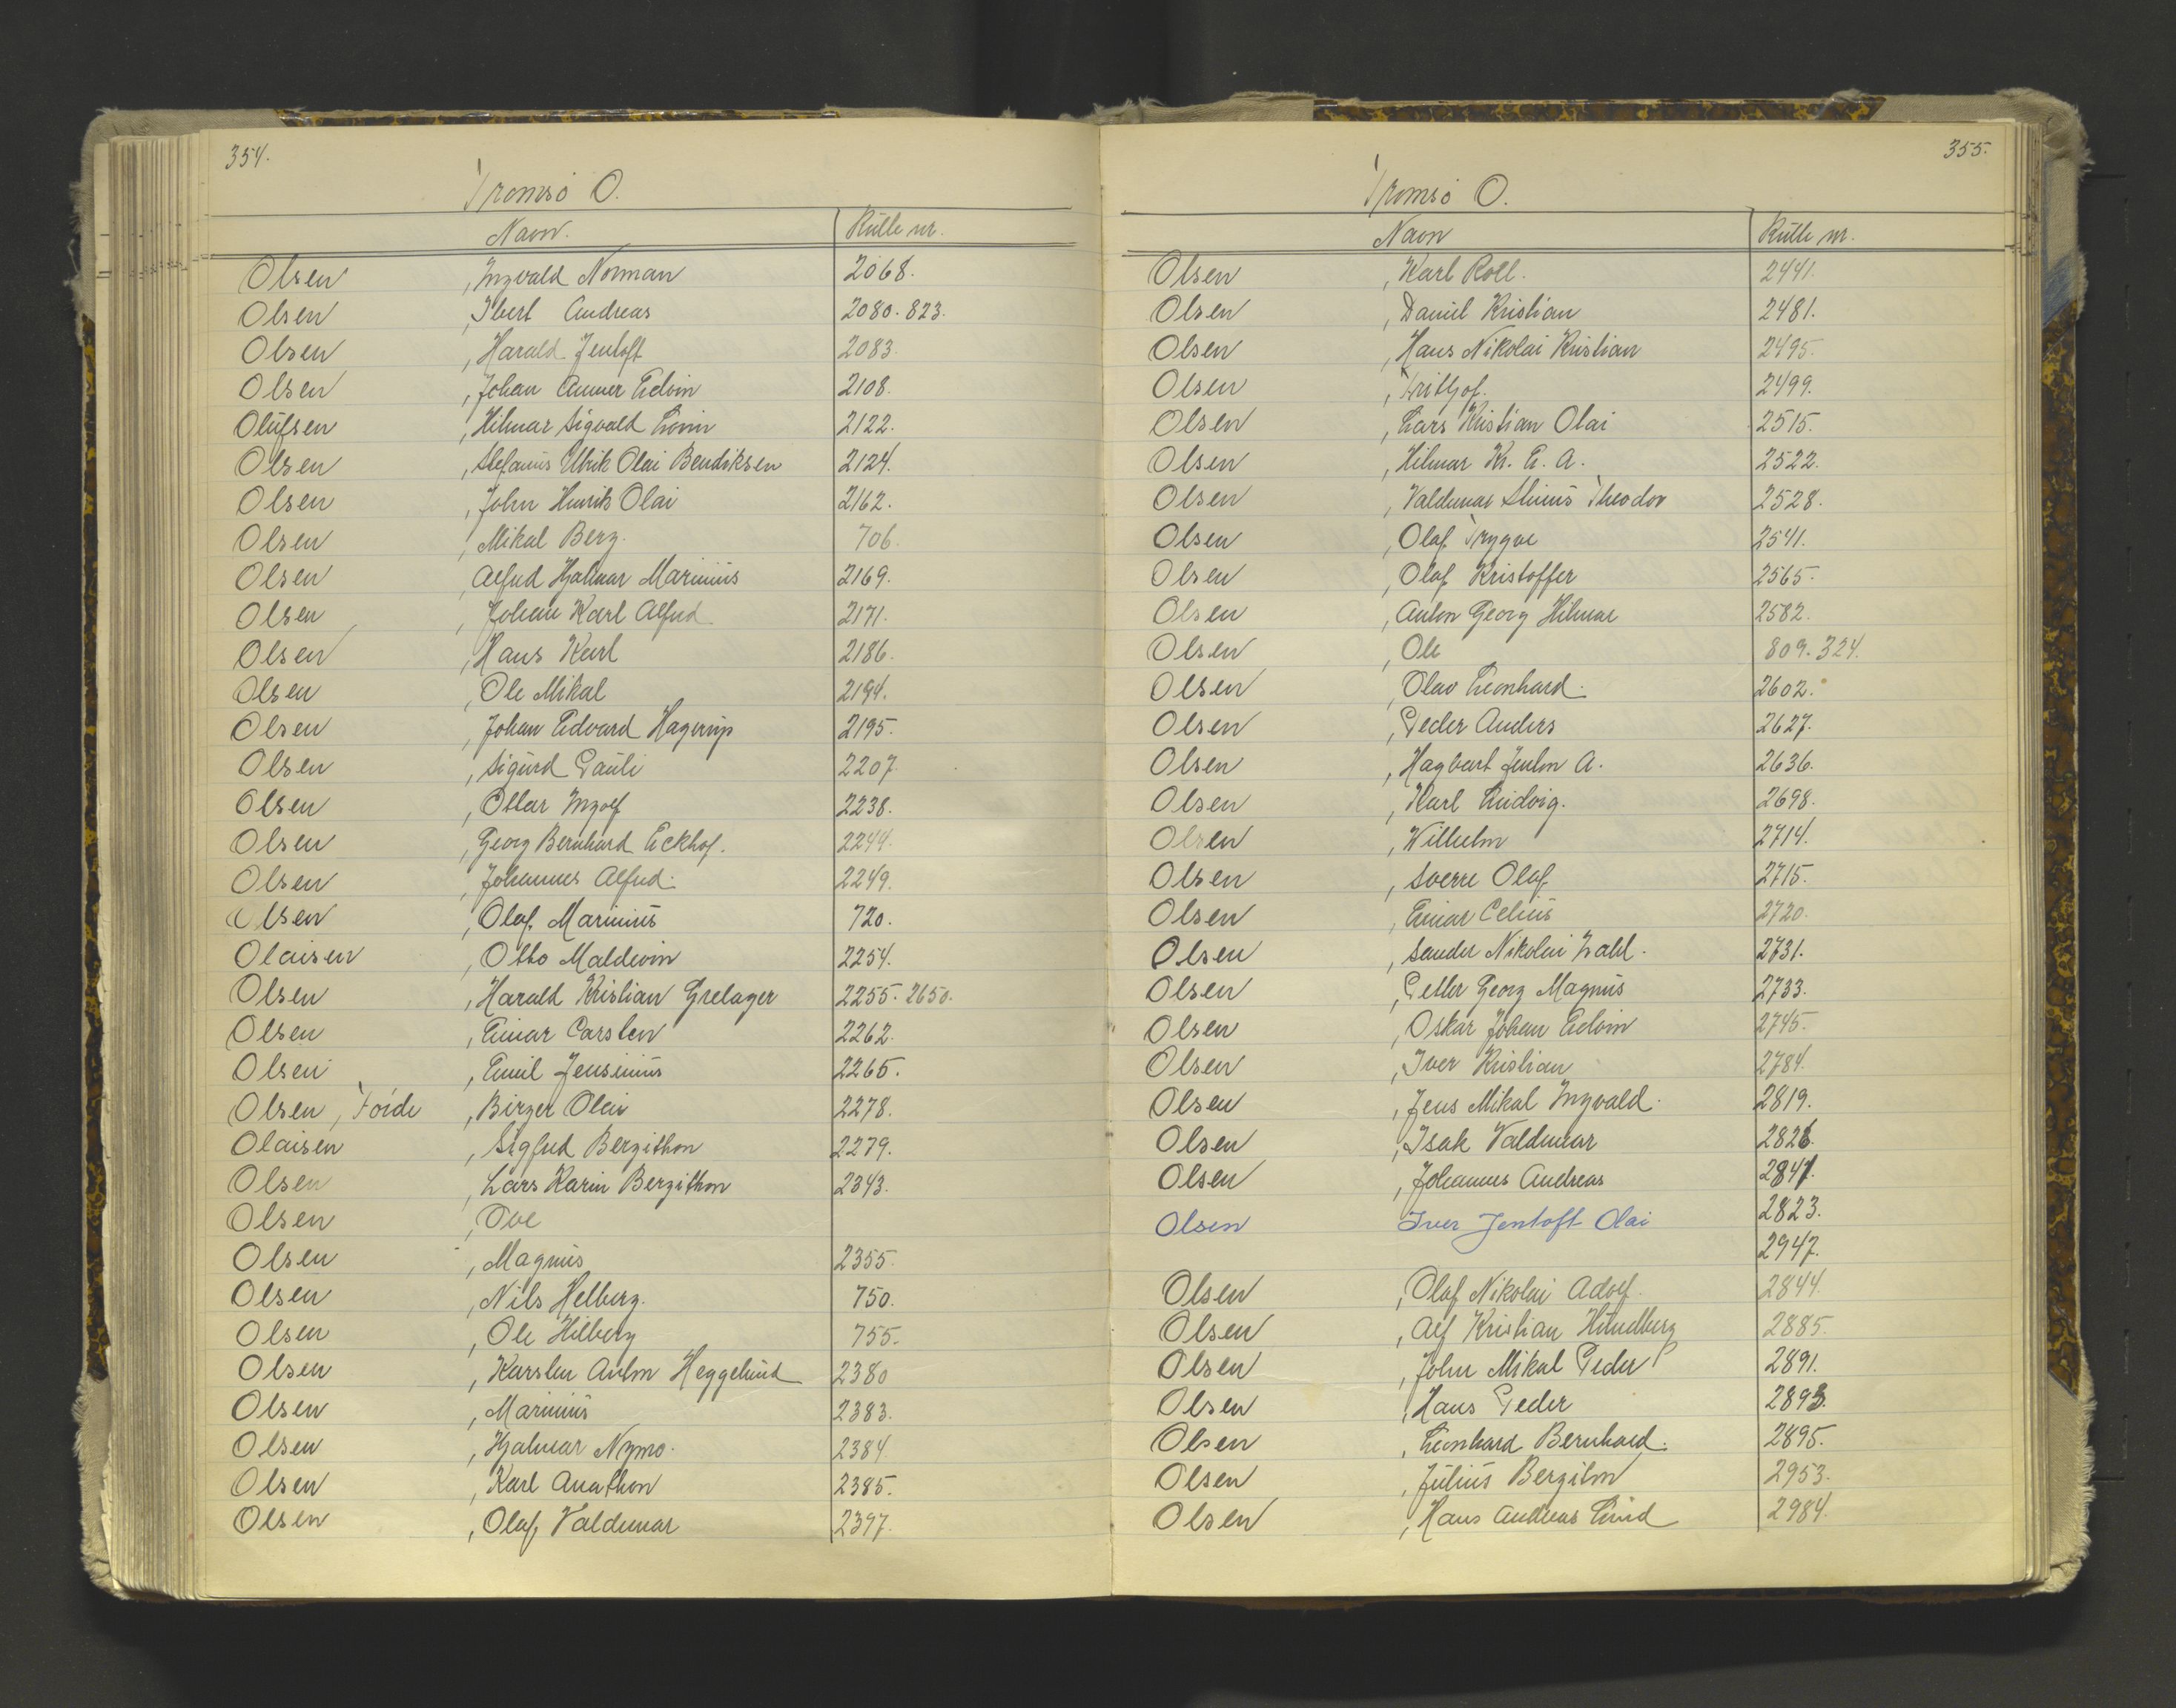 354.
Tromsø O.
Navn. Rulle nr.
Olsen , Ingvald Norman 2068.
Olsen , Ibert Andreas 2080. 823.
Olsen , Harald Jentoft 2083.
Olsen , Johan Anner Edvin 2108.
Olufsen , Hilmar Sigvald Lovin 2122.
Olsen , Stefanus Ulrik Olai Bendiksen 2124.
Olsen , John Henrik Olai 2162.
Olsen , Mikal Berg. 706.
Olsen , Alfred Hjalmar Marinius 2169.
Olsen , Johan Karl Alfred 2171.
Olsen , Hans Karl 2186.
Olsen , Ole Mikal 2194.
Olsen , Johan Edvard Hagerup 2195.
Olsen , Sigurd Pauli 2207.
Olsen , Ottar Ingolf 2238.
Olsen , Georg Bernhard Eckhof. 2244.
Olsen , Johannes Alfred. 2249.
Olsen , Olaf Marinius 720.
Olaisen , Otto Maldevin 2254.
Olsen , Harald Kristian Grelager 2255. 2650.
Olsen , Einar Carsten 2262.
Olsen , Emil Jensinius 2265.
Olsen , Förde , Birger Olai 2278.
Olaisen , Sigfred Bergithon 2279.
Olsen , Lars Karin Bergithon 2343.
Olsen , Ove
Olsen , Magnus 2355.
Olsen , Nils Helberg. 750.
Olsen , Ole Hilberg 755.
Olsen , Karsten Anton Heggelund 2380
Olsen , Marinius 2383.
Olsen , Hjalmar Nymo. 2384.
Olsen , Karl Anathon 2385.
Olsen , Olaf Valdemar 2397.
355.
Tromsø O.
Navn Rulle nr.
Olsen , Karl Roll. 2441.
Olsen , Daniel Kristian 2481.
Olsen , Hans Nikolai Kristian 2495.
Olsen , Fritjof. 2499.
Olsen , Lars Kristian Olai 2515.
Olsen , Hilmar Kr. E. A. 2522.
Olsen , Valdemar Theodor 2528.
Olsen , Olaf Trygve 2541.
Olsen , Olaf Kristoffer 2565.
Olsen , Anton Georg Hilmar 2582.
Olsen , Ole 809. 324.
Olsen , Olav Leonhard. 2602.
Olsen , Peder Anders 2627.
Olsen , Hagbart Jenton A. 2636.
Olsen , Karl Ludvig. 2698.
Olsen , Wilhelm 2714.
Olsen , Sverre Olaf 2715.
Olsen , Einar Celius 2720.
Olsen , Sander Nikolai Zahl. 2731.
Olsen , Petter Georg Magnus 2733.
Olsen , Oskar Johan Edvin 2745.
Olsen , Iver Kristian 2784.
Olsen , Jens Mikal Ingvald. 2819.
Olsen , Isak Valdemar 2826.
Olsen , Johannes Andreas 2847.
Olsen Iver Jentoft Olai 2823.
2947.
Olsen , Olaf Nikolai Adolf. 2844.
Olsen , Alf Kristian Hindberg 2885.
Olsen , John Mikal Peder 2891.
Olsen , Hans Peder 2893.
Olsen , Leonhard Bernhard. 2895.
Olsen , Julius Bergiton 2953.
Olsen , Hans Andreas Lind 2984.